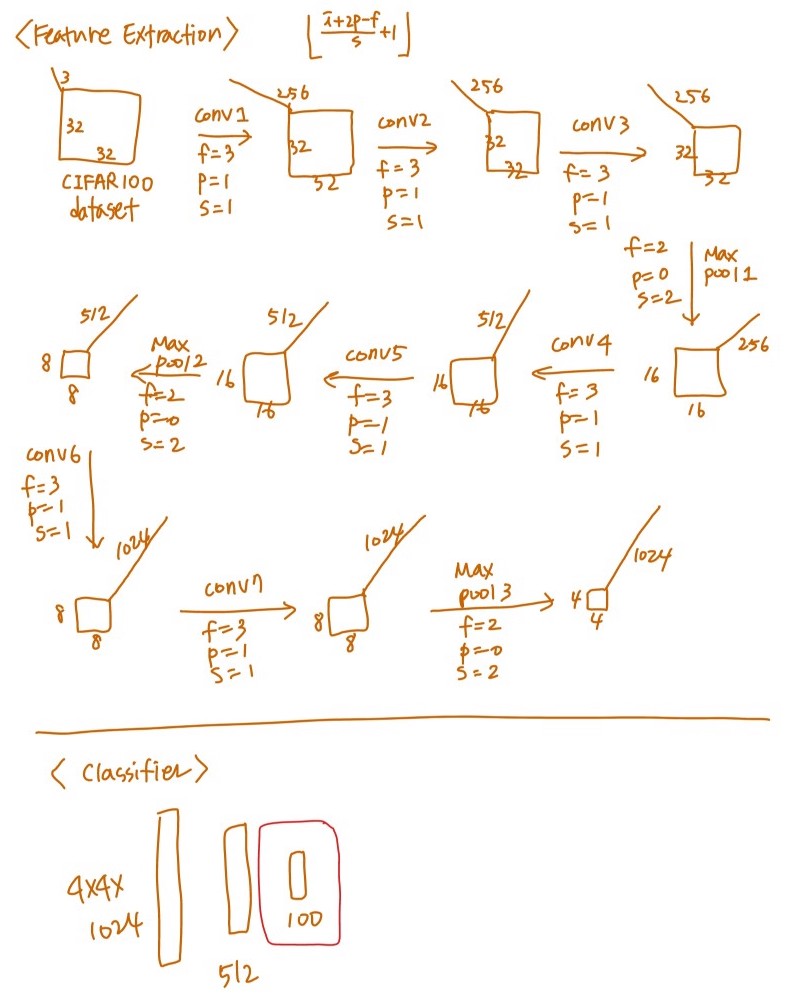 <Feature Extraction>
⌊(i+2p-f)/s +1⌋
3
32
32
CIFAR100
dataset
conv1
f=3
p=1
s=1
256
32
32
conv2
f=3
p=1
s=1
256
32
32
conv3
f=3
p=1
s=1
256
32
32
f=2
p=0
s=2
Max
pool1
256
16
16
conv4
f=3
p=1
s=1
512
16
16
conv5
f=3
p=1
s=1
512
16
16
Max
pool2
f=2
p=0
s=2
512
8
8
conv6
f=3
p=1
s=1
1024
8
8
conv7
f=3
p=1
s=1
1024
8
8
Max
pool3
f=2
p=0
s=2
1024
4
4
<Classifier>
4x4x
1024
512
100